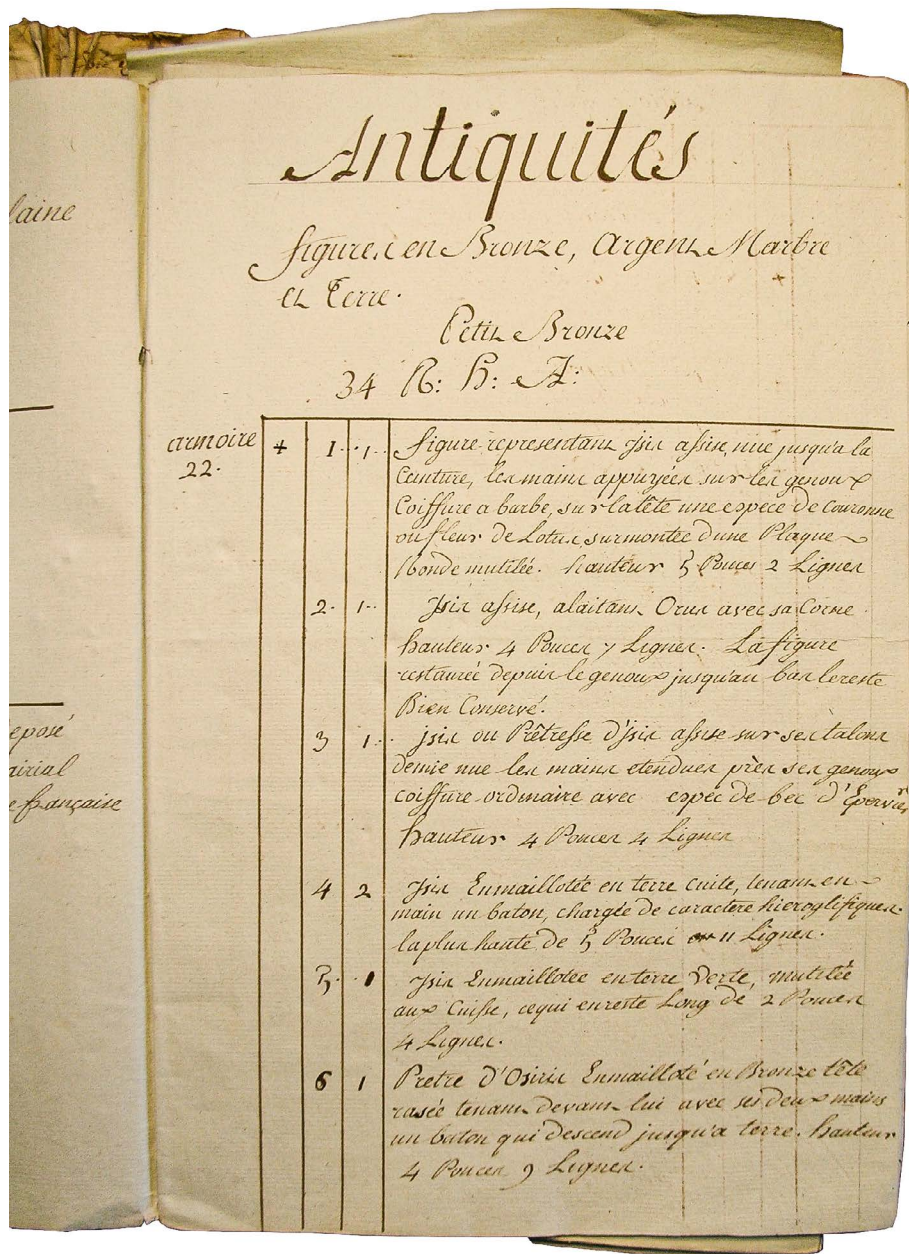 laine
eposé
airial
e française
Antiquités
figures en Bronze, Argent Marbre
et Terre.
Petit Bronze
34 R: H: A:
armoire
22.
+ 1.. 1.. figure representant Isis assise, nue jusqu'a la
Ceinture, les mains appuyées sur les genoux
Coiffure a barbe, sur la tête une espece de couronne
ou fleur de Lotus, surmontée d'une Plaque
Ronde mutilée. hauteur 5 Pouces 2 Lignes
2. 1.. Isis assise, alaitant Orus avec sa Corne.
hauteur 4 Pouces 7 Lignes. La figure
restaurée depuis le genoux jusqu'au bas le reste
Bien Conservé.
3 1.. isis ou Prêtresse d'isis assise sur ses talons
demie nue les mains etendues près ses genoux
coiffure ordinaire avec espéc de bec d'Epervier
hauteur 4 Pouces 4 Lignes
4 2 Isis Enmaillotée en terre cuite, tenant en
main un baton, chargée de caractere hieroglifiques.
la plus haute de 5 Pouces 11 Lignes.
5. 1 Isis Enmaillotée en terre Verte, mutilée
aux Cuisse, ce qui en reste Long de 2 Pouces
4 Lignes.
6 1 Pretre d'Osiris Enmailloté en Bronze tête
rasée tenant devant lui avec ses deux mains
un baton qui descend jusqu'a terre. hauteur
4 Pouces 9 Lignes.